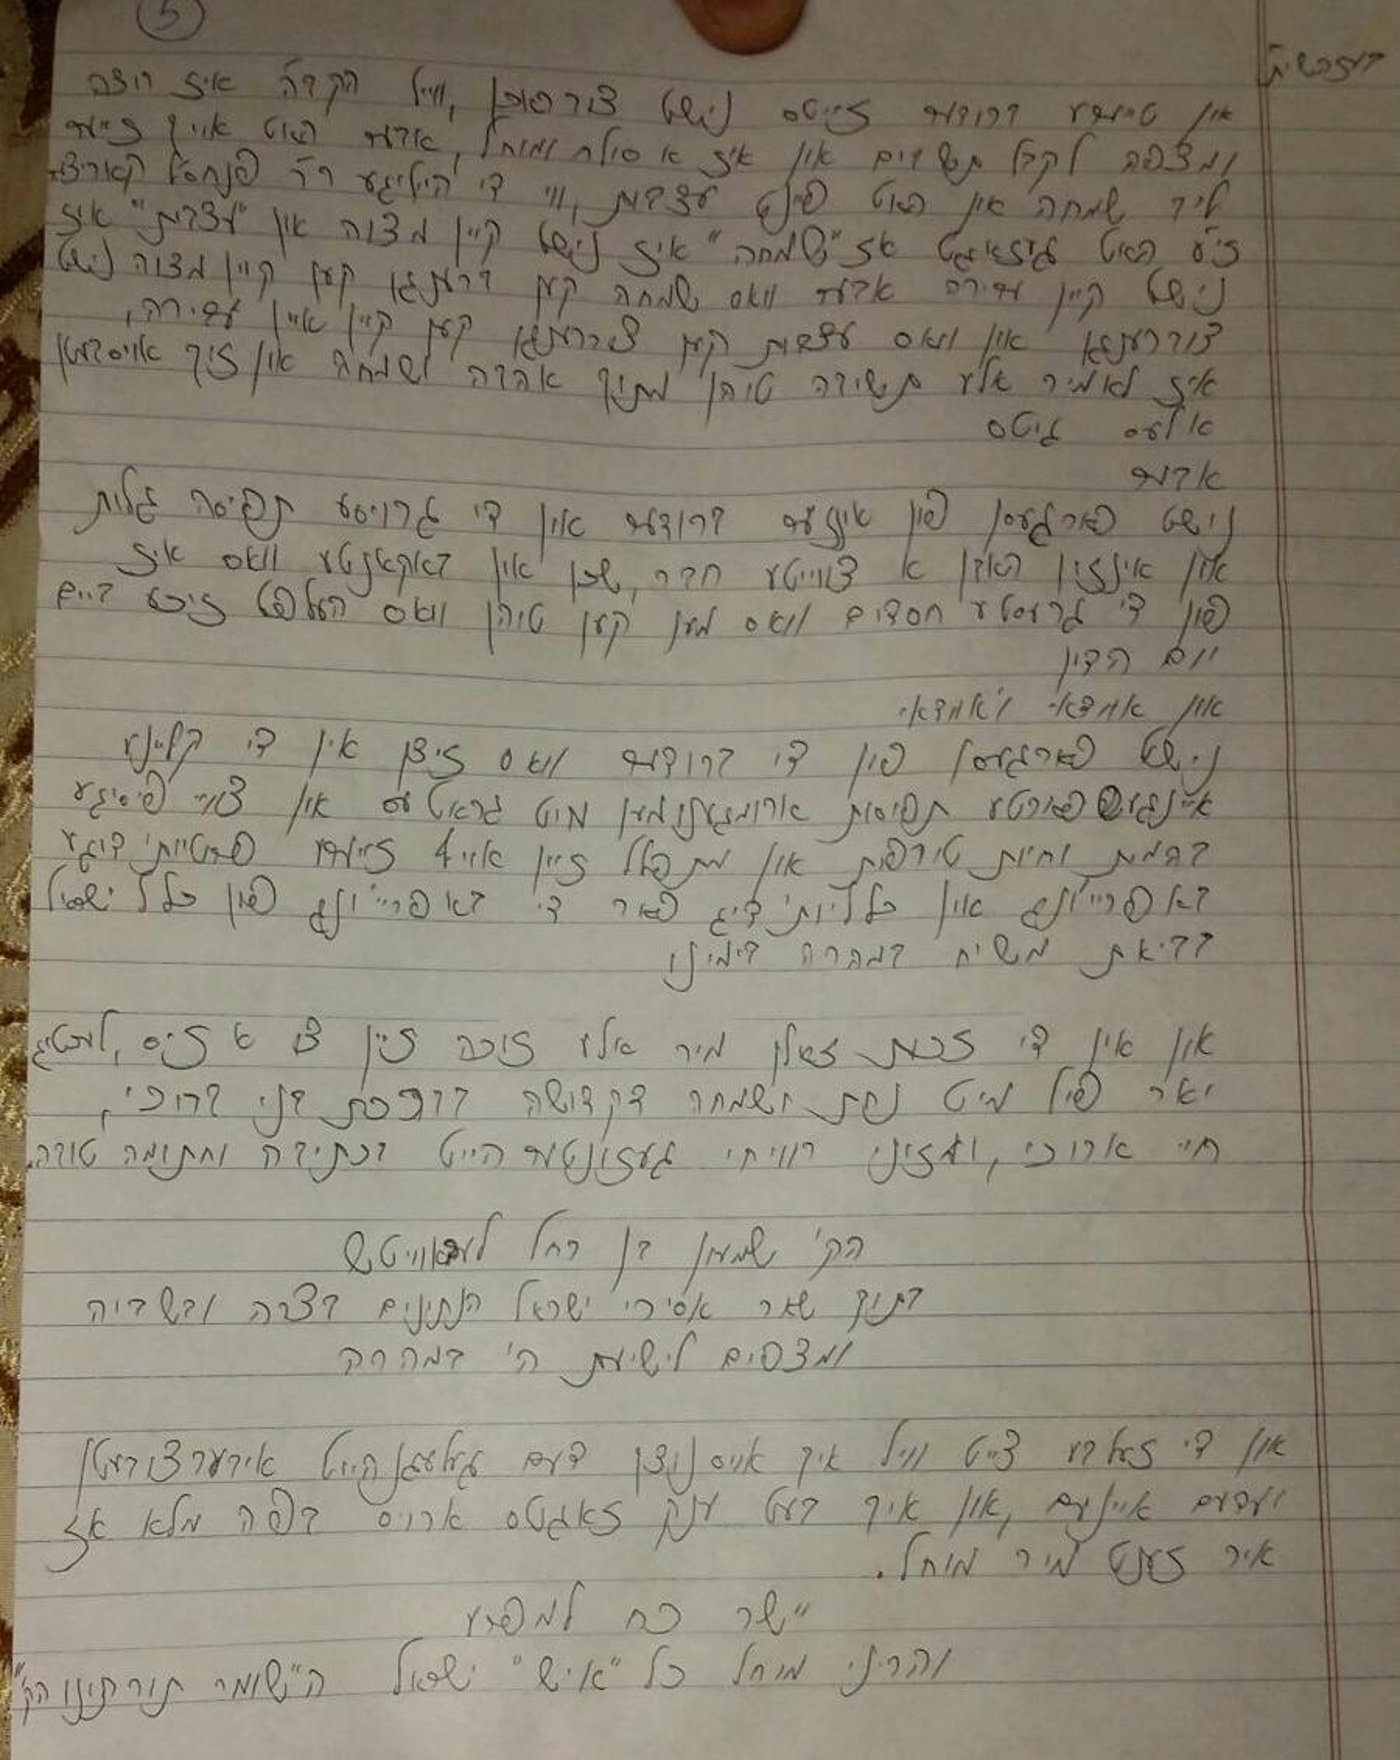 5
בעזהשי״ת
און טייערע ברודער זייטס נישט צובראכן, ווייל הקב״ה איז רוצה
ומצפה לקבל תשובים און איז א סולח ומוחל, אבער האט אויך זייער
ליב שמחה און האט פיינט עצבות, ווי די הייליגע ר״ר פנחס׳ל קאריצער
זי״ע האט געזאגט אז "שמחה" איז נישט קיין מצוה און "עצבות" איז
נישט קיין עבירה אבער וואס שמחה קען ברענגן קען קיין מצוה נישט
צוברענגן און וואס עצבות קען צוברענגן קען קיין איין עבירה,
איז לאמיר אלע תשובה טוהן מתוך אהבה ושמחה און זיך אויסבעטן
אלעס גוטס
אבער
נישט פארגעסן פון אונזער ברודער אין די גרויסע תפיסה גלות
און אינזין האבן א צווייטע חבר, שכן און באקאנטע וואס איז
פון די גרעסטע חסדים וואס מען קען טוהן וואס העלפט זיכער ביים
יום הדין
און אוודאי ואוודאי
נישט פארגעסן פון די ברודער וואס זיצן אין די קליינע
איינגעשפארטע תפיסות ארומגענומען מיט גראטעס און צוויי פיסיגע
בהמות וחיות טורפות און מתפלל זיין אויף זייער פרטיות׳דיגע
באפרייאונג און כלליות׳דיג פאר די באפרייאונג פון כלל ישראל
בביאת משיח במהרה בימינו
און אין די זכות זאלן מיר אלע זוכה זיין צו א זיס, לעכטיג
יאר פיל מיט נחת ושמחה דקדושה בברכת בני ברוכי,
חיי ארוכי, ומזוני רוויחי געזונטערהייט בכתיבה וחתומה טובה.
הק׳ שמעון בן רחל לעבאוויטש
בתוך שאר אסירי ישראל הנתונים בצרה ובשביה
ומצפים לישועת ה׳ במהרה
און די זעלבע צייט וויל איך אויסנוצן דעם געלעגנהייט איבערצובעטן
יעדעם איינעם, און איך בעט ענק זאגטס ארויס בפה מלא אז
איר זענט מיר מוחל.
יישר כח למפרע
והריני מוחל כל "איש" ישראל ה"שומר תורתינו הק׳"